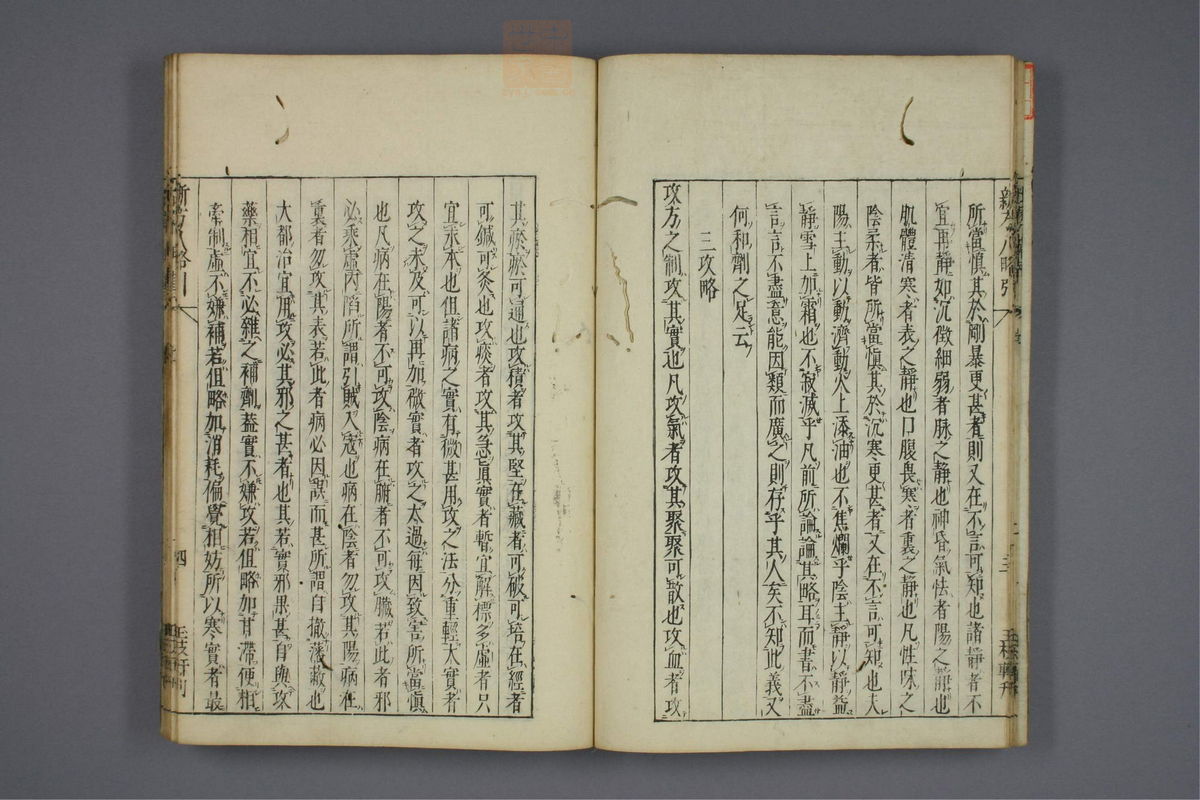 所當慎其於剛暴更甚者則又在不言可知也諸靜者不
宜再靜如沉微細弱者脉之靜也神昏氣怯者陽之靜也
肌體清寒者表之靜也口腹畏寒者裏之靜也凡性味之
陰柔者皆所當慎其於沉寒更甚者又在不言可知也夫
陽主動以動濟動火上添油也不焦爛乎陰主靜以靜益
靜雪上加霜也不寂滅乎凡前所論論其略耳而書不盡
言言不盡意能因類而廣之則存乎其人矣不知此義又
何和劑之足云
三攻略
攻方之制攻其實也凡攻氣者攻其聚聚可散也攻血者攻
其瘀瘀可通也攻積者攻其堅在藏者可破可培在經者
可鍼可灸也攻痰者攻其急眞實者暫宜解標多虛者只
宜求本也但諸病之實有微甚用攻之法分重輕大實者
攻之未及可以再加微實者攻之太過每因致害所當慎
也凡病在陽者不可攻陰病在腑者不可攻臟若此者邪
必乘虛内陷所謂引賊入寇也病在陰者勿攻其陽病在
裏者勿攻其表若此者病必因誤而甚所謂自撤藩蔽也
大都治宜用攻必其邪之甚者也其若實邪果甚自與攻
藥相宜不必雜之補劑蓋實不嫌攻若但略加甘滯便相
牽制虛不嫌補若但略加消耗偏覺相妨所以寒實者最
新方八略引
三
新方八略引
四